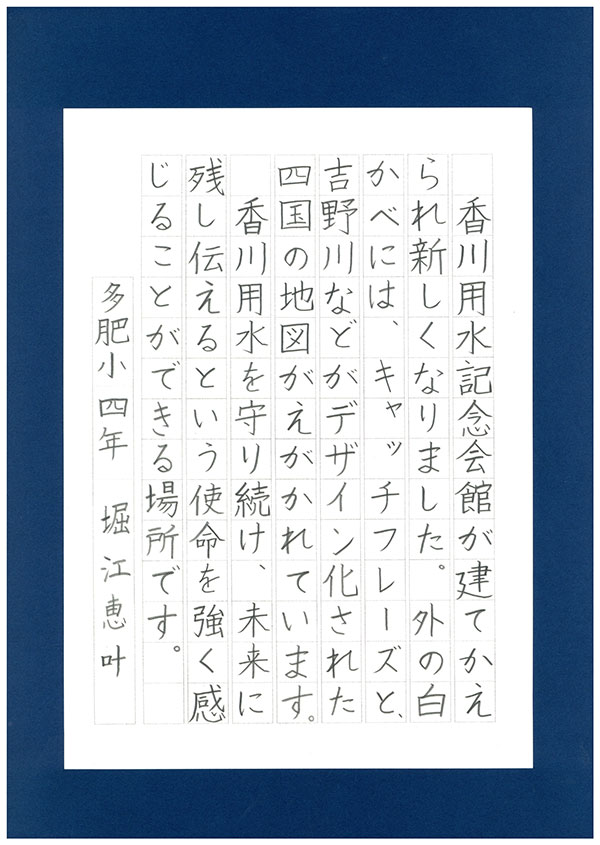 香川用水記念会館が建てかえ
られ新しくなりました。外の白
かべには、キャッチフレーズと、
吉野川などがデザイン化された
四国の地図がえがかれています。
香川用水を守り続け、未来に
残し伝えるという使命を強く感
じることができる場所です。
多肥小四年 堀江恵叶